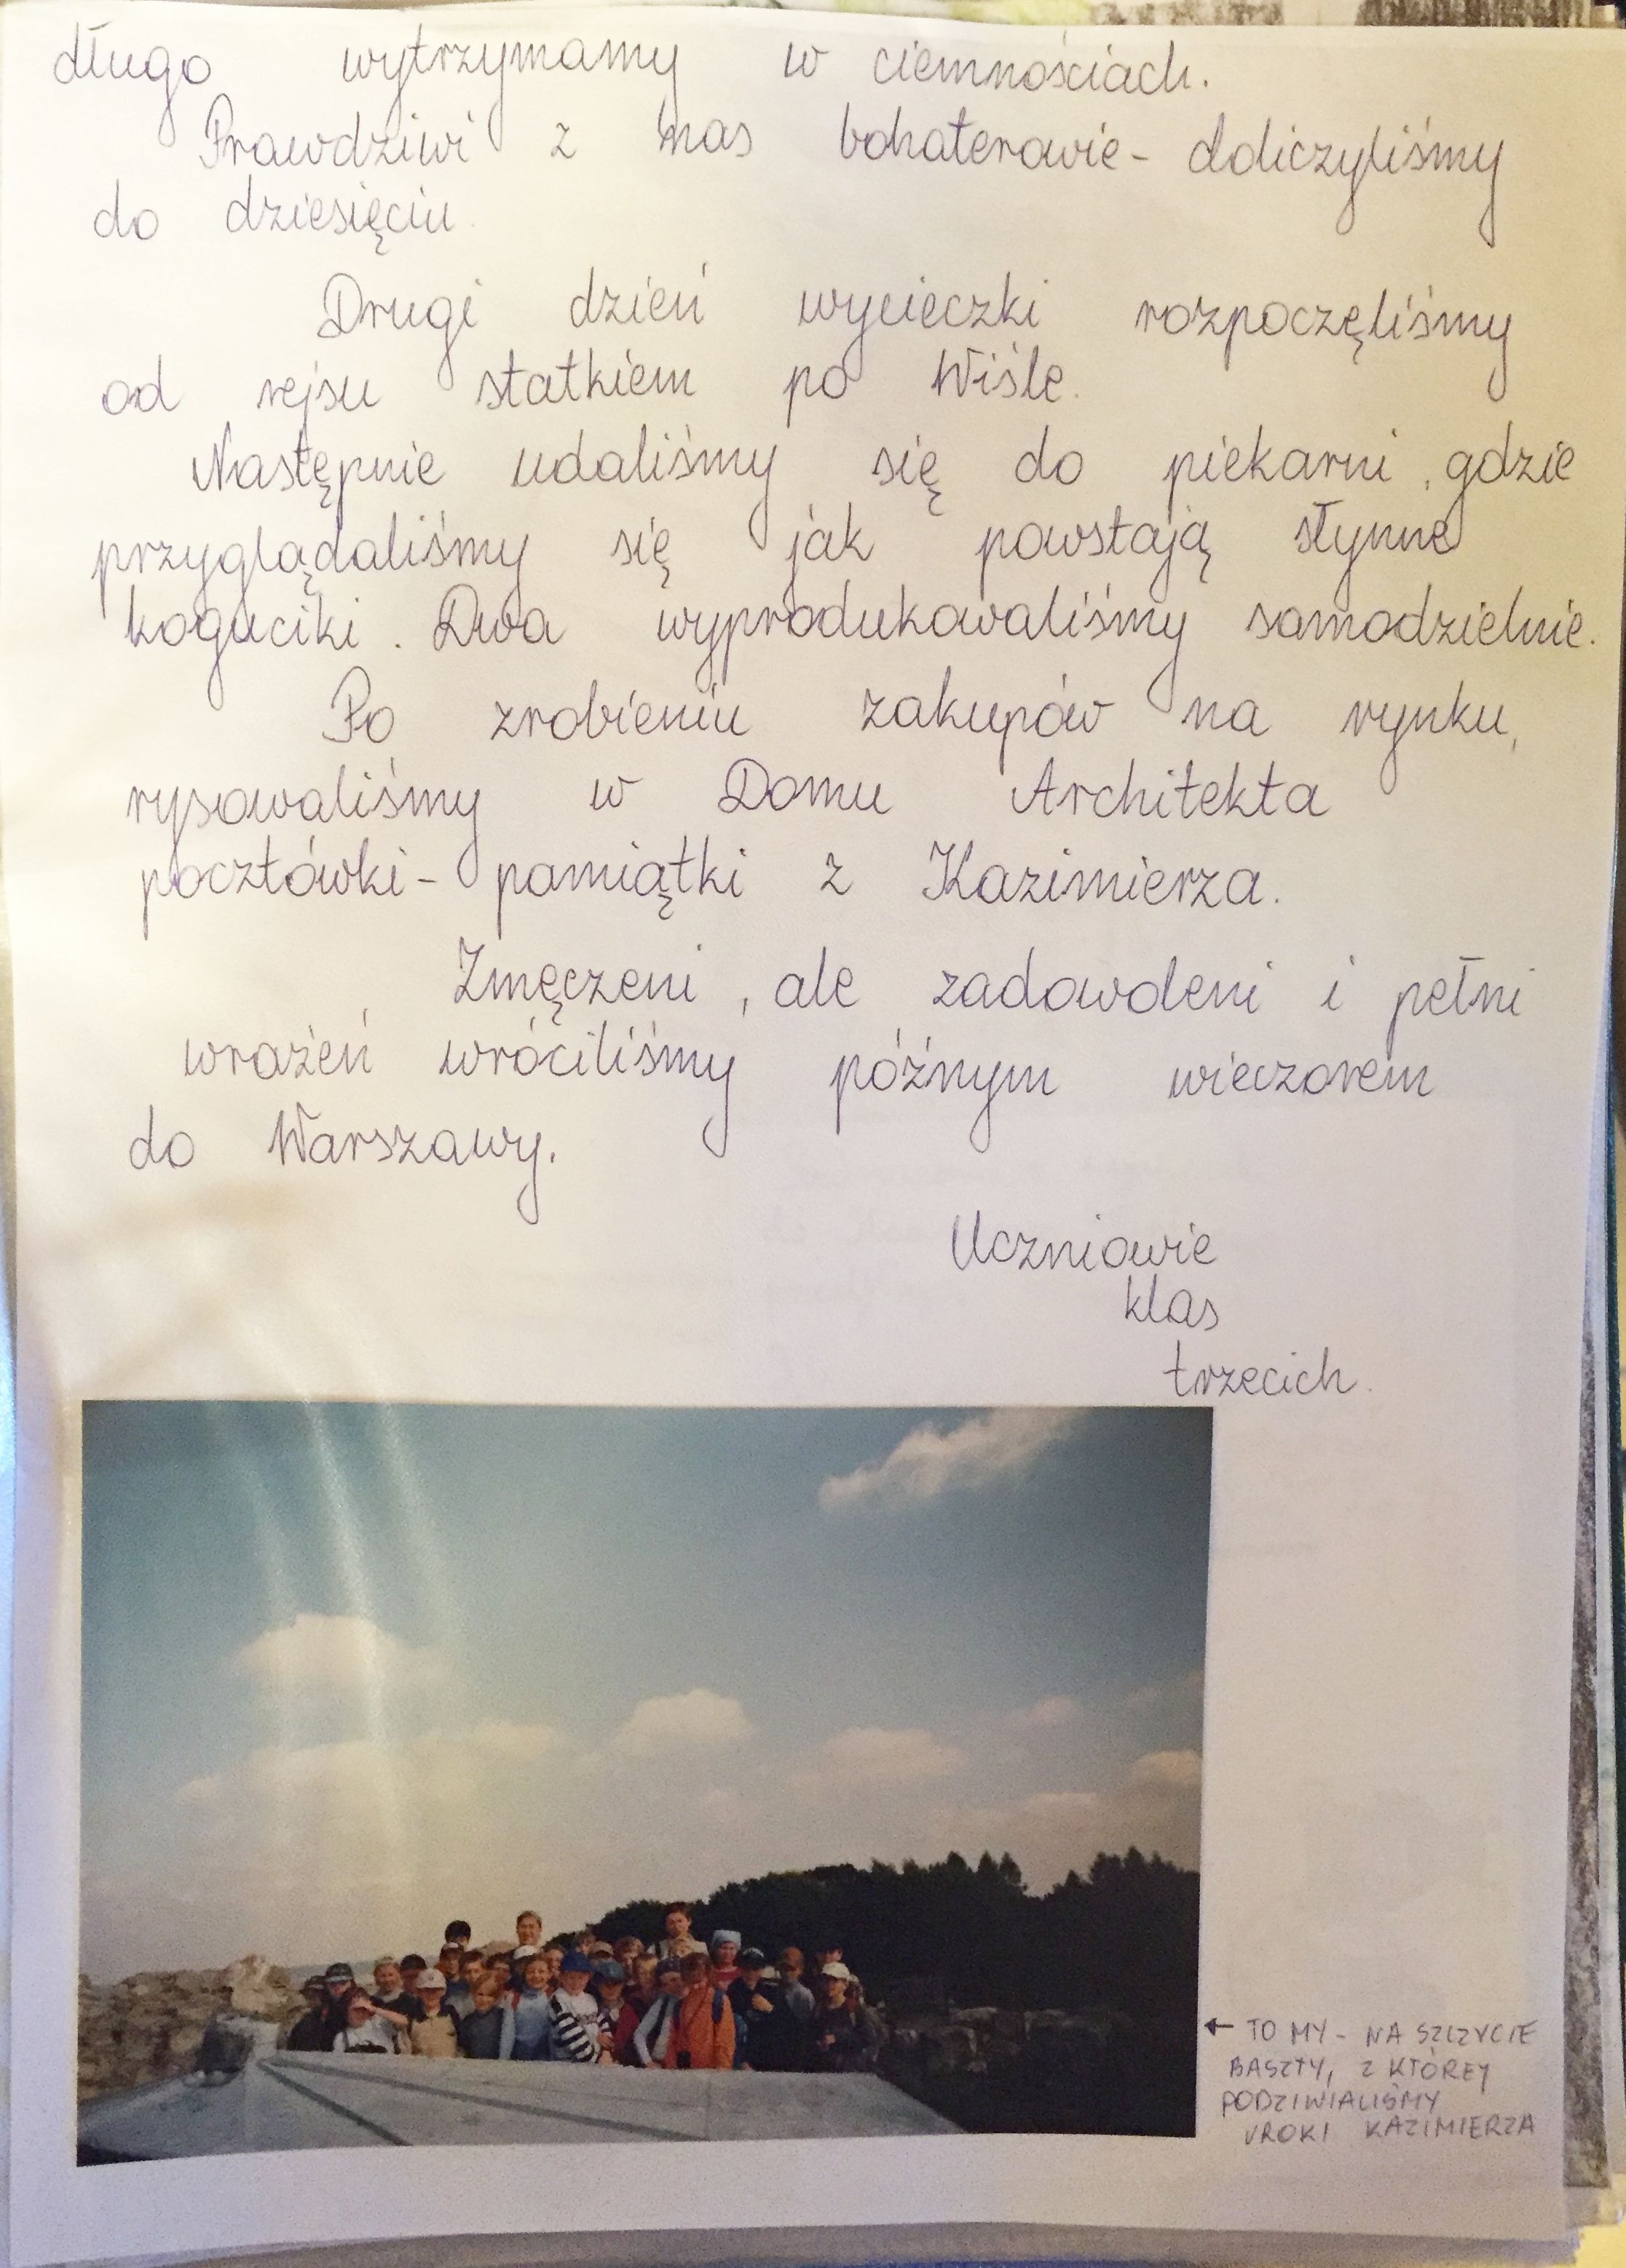 długo wytrzymamy w ciemnościach.
Prawdziwi z nas bohaterowie - doliczyliśmy
do dziesięciu.
Drugi dzień wycieczki rozpoczęliśmy
od rejsu statkiem po Wiśle.
Następnie udaliśmy się do piekarni, gdzie
przyglądaliśmy się jak powstają słynne
koguciki. Dwa wyprodukowaliśmy samodzielnie.
Po zrobieniu zakupów na rynku,
rysowaliśmy w Domu Architekta
pocztówki - pamiątki z Kazimierza.
Zmęczeni, ale zadowoleni i pełni
wrażeń wróciliśmy późnym wieczorem
do Warszawy.
Uczniowie
klas
trzecich.
← TO MY - NA SZCZYCIE
BASZTY, Z KTÓREJ
PODZIWIALIŚMY
UROKI KAZIMIERZA